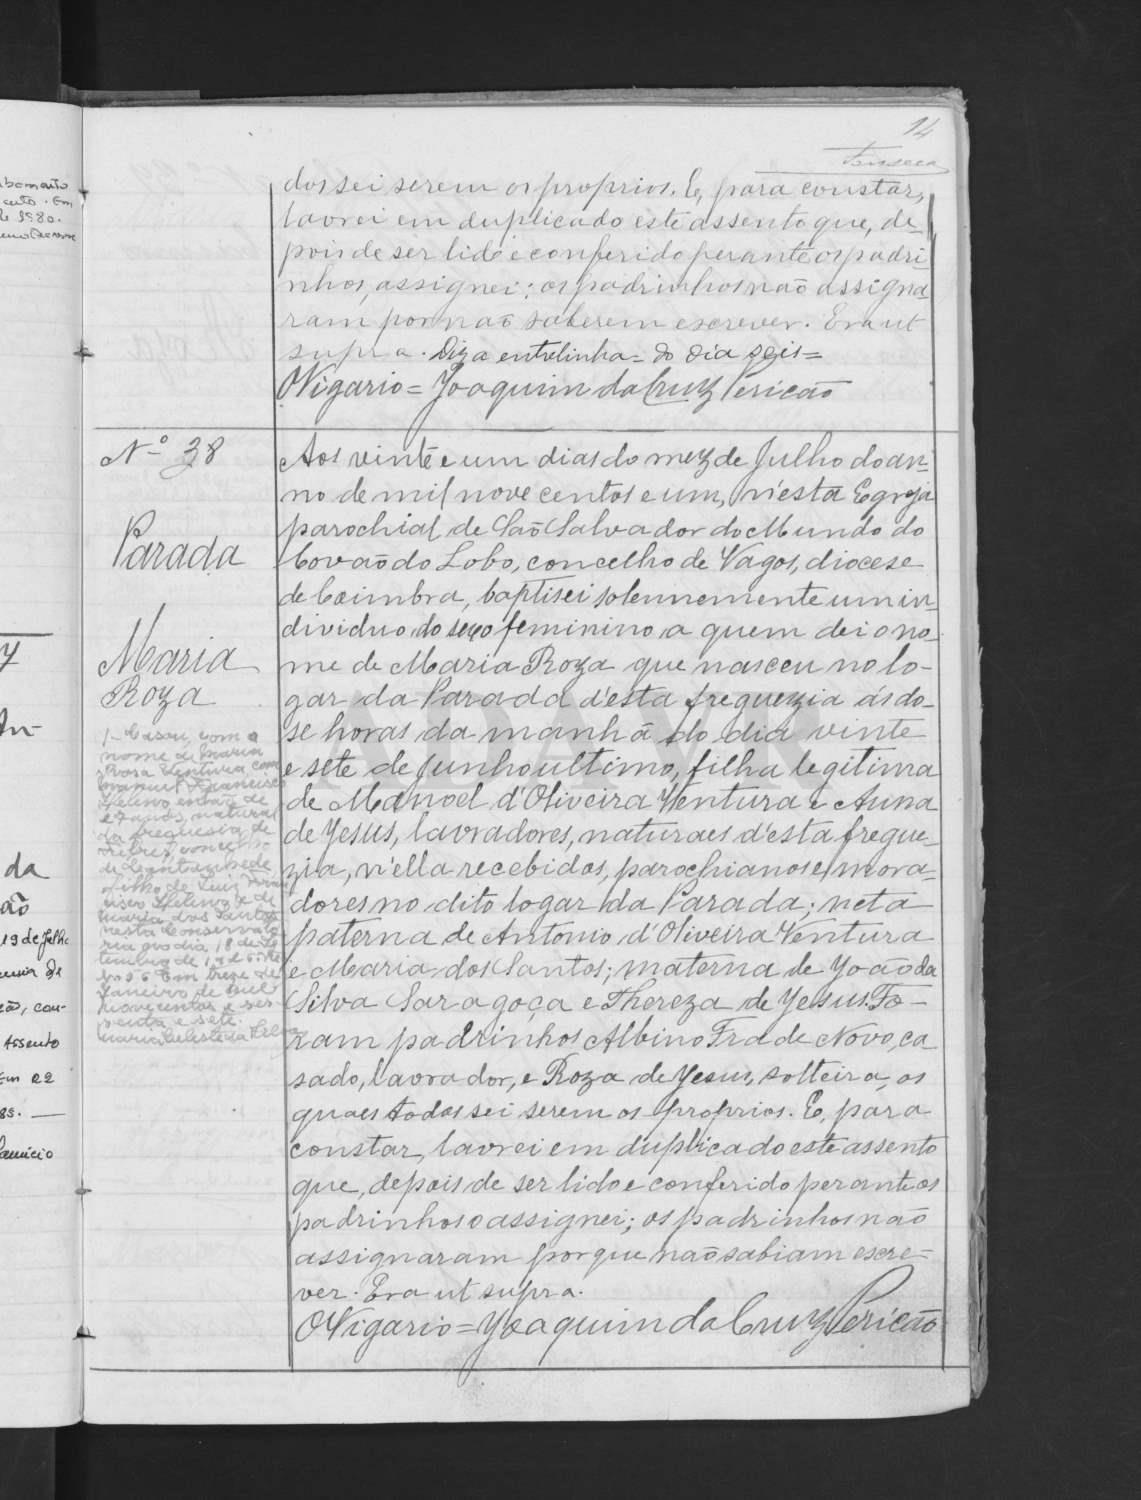 14
Fonseca
dos sei serem os proprios. E, para constar,
lavrei em duplicado este assento que, de-
pois de ser lido e conferido perante os padri-
nhos, assignei; os padrinhos não assigna-
ram por não saberem escrever. Era ut
supra. Diz a entrelinha = do dia seis =
O Vigario = Joaquim da Cruz Pericão
Nº 38
Parada
Maria
Roza
1- Casou, com o
nome de Maria
Rosa Ventura, com
Manuel Francisco
natural
da freguesia de
de Cantanhede
filho de Luiz Fran
cisco e de
Maria dos Santos
nesta Conservató
ria no dia 18 de
Em treze de
Janeiro de mil
novecentos e ses-
senta e sete.
Aos vinte e um dias do mez de Julho do an-
no de mil nove centos e um, n'esta Egreja
parochial de São Salvador do Mundo do
Covão do Lobo, concelho de Vagos, diocese
de Coimbra, baptisei solennemente um in-
dividuo do sexo feminino a quem dei o no-
me de Maria Roza que nasceu no lo-
gar da Parada d'esta freguezia ás do-
se horas da manhã do dia vinte
e sete de Junho ultimo, filha legitima
de Manoel d'Oliveira Ventura e Anna
de Jesus, lavradores, naturaes d'esta fregue-
zia, n'ella recebidos, parochianos e mora-
dores no dito logar da Parada; neta
paterna de Antonio d'Oliveira Ventura
e Maria dos Santos; materna de João da
Silva Saragoça e Thereza de Jesus. Fo-
ram padrinhos Albino Frade Novo, ca
sado, lavrador, e Roza de Jesus, solteira, os
quaes todos sei serem os proprios. E, para
constar, lavrei em duplicado este assento
que, depois de ser lido e conferido perante os
padrinhos o assignei; os padrinhos não
assignaram porque não sabiam escre-
ver. Era ut supra.
O Vigario = Joaquim da Cruz Pericão
ADAVR